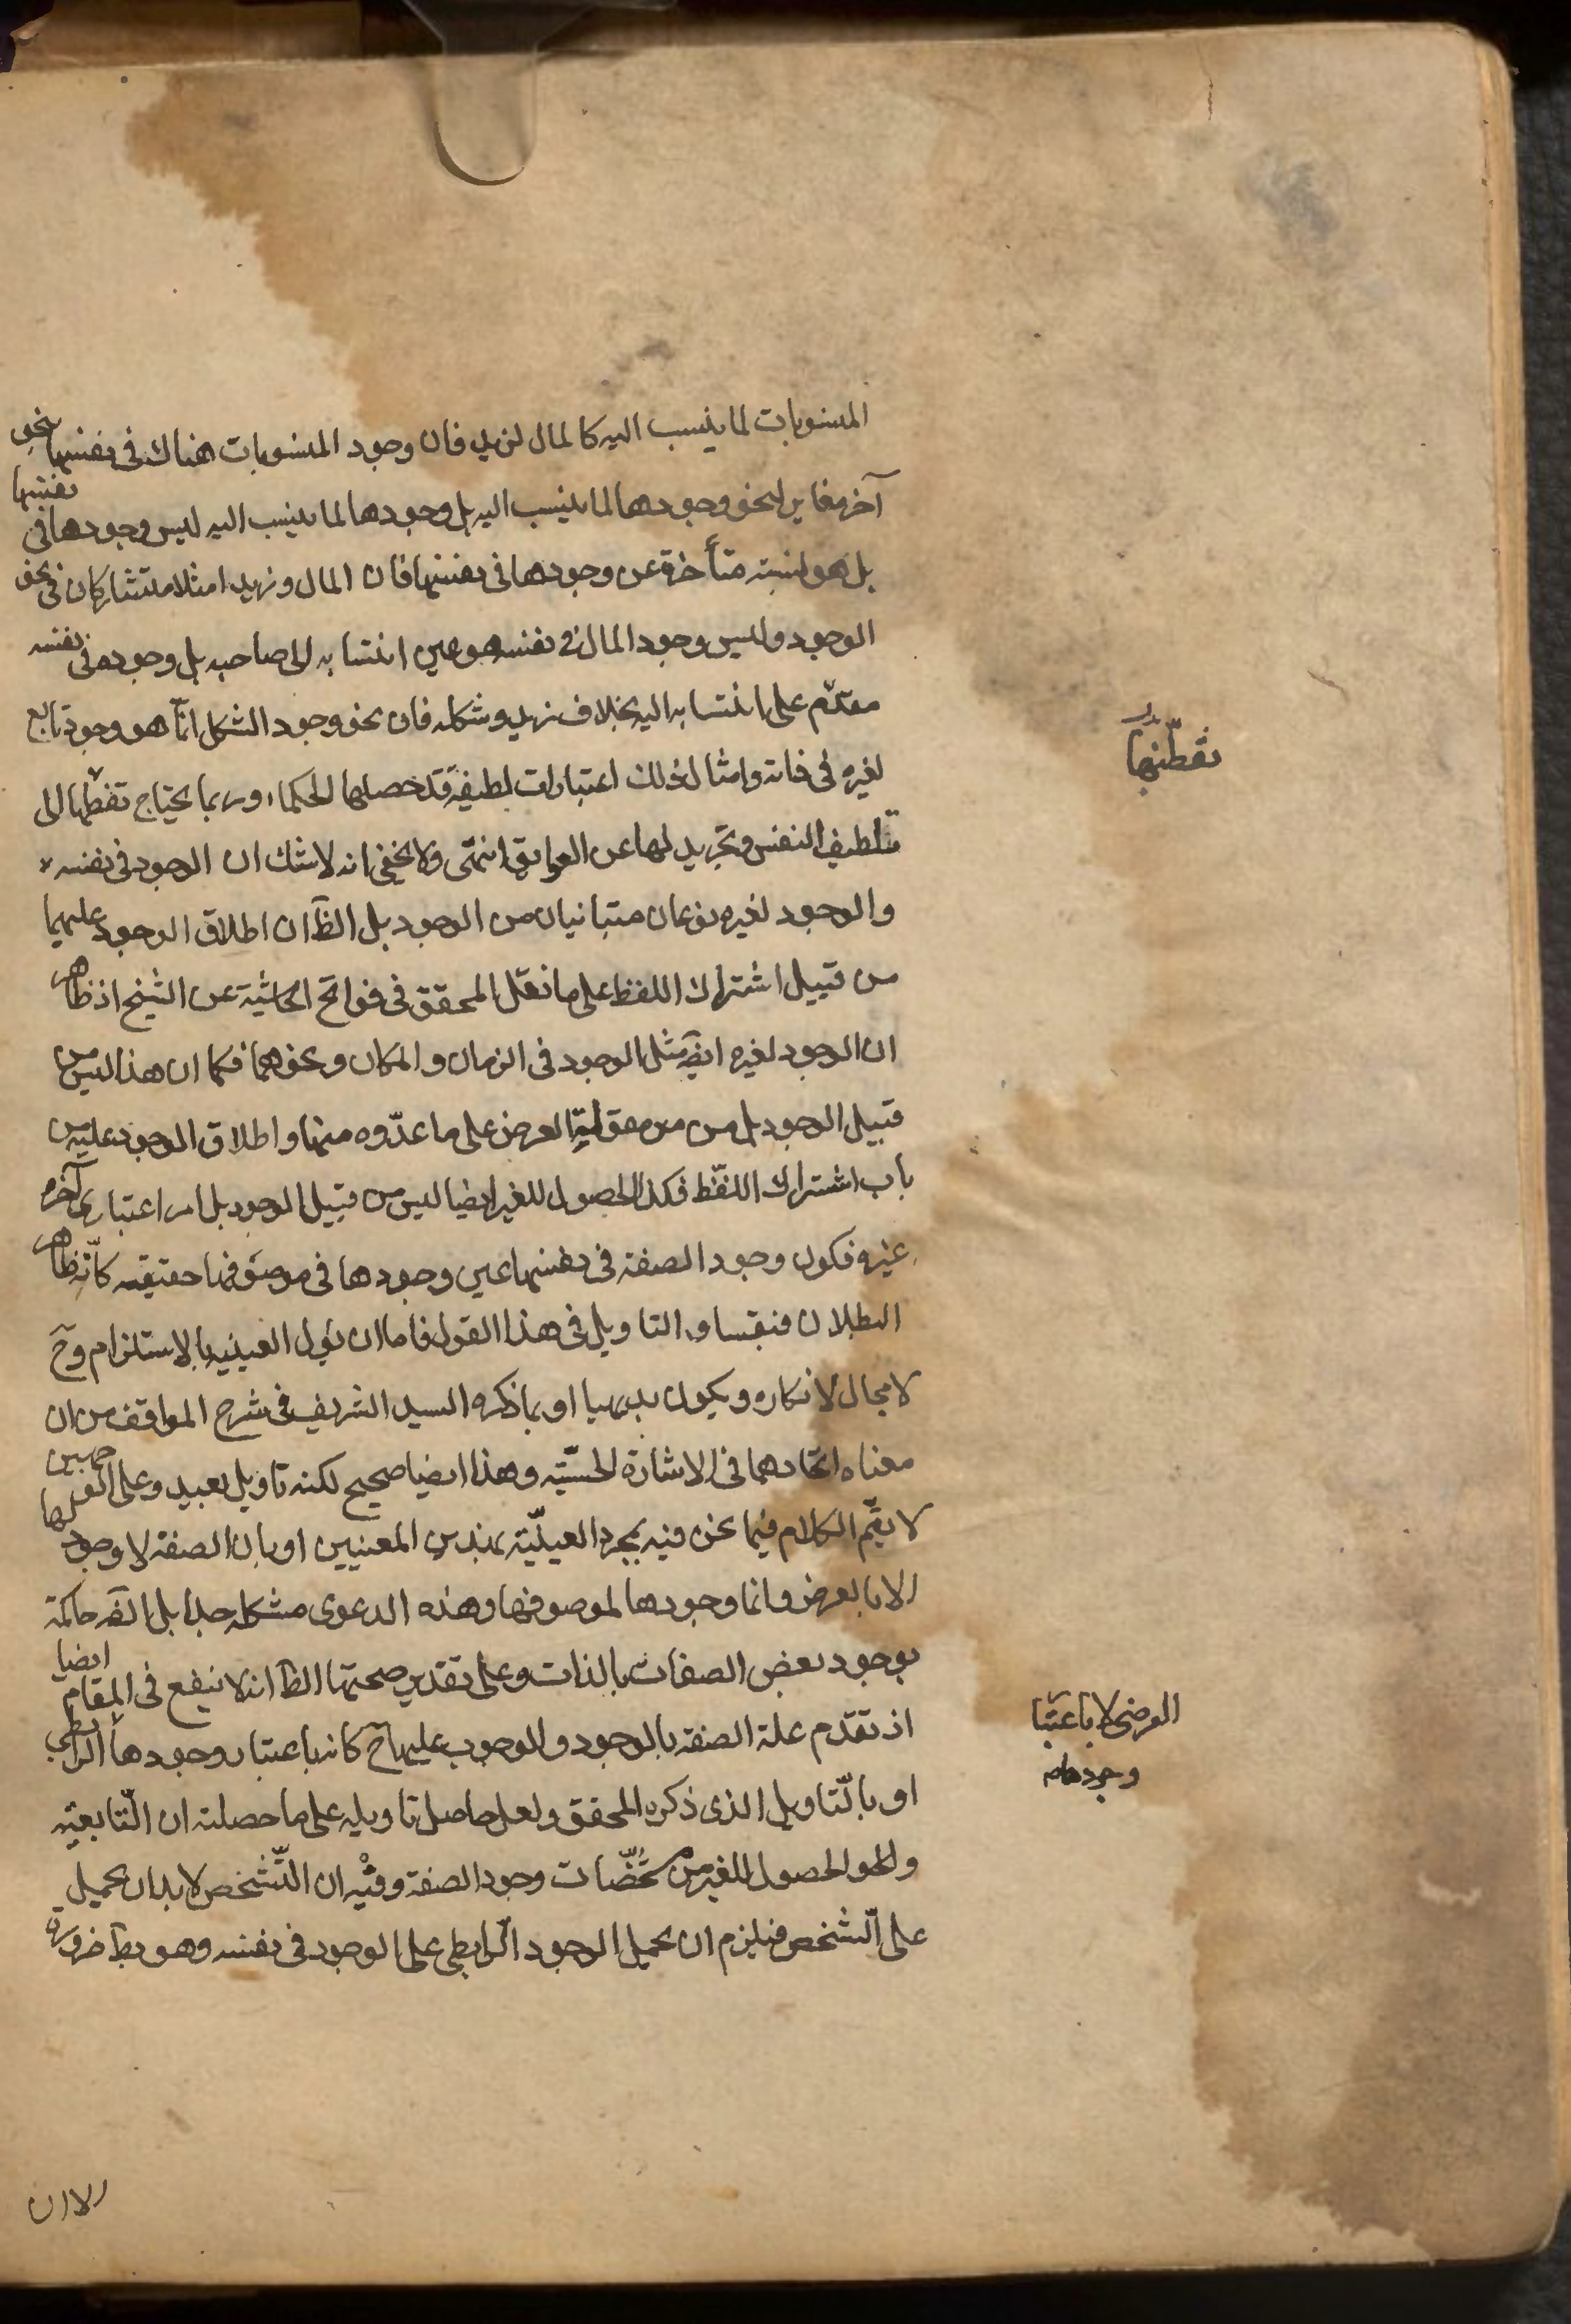 المنسوبات لما ينسب اليه كالمال لزيد فان وجود المنسوبات هناك في نفسها نحو
آخر مغاير لنحو وجودها لما ينسب اليه بل وجودها لما ينسب اليه ليس وجودها في نفسها
بل هو نسبته متأخرة عن وجودها في نفسها فان المال وزيد امثلا متشاركان في نحو
الوجود وليس وجود المال في نفسه هو عين انتسابه الى صاحبه بل وجوده في نفسه
مقدّم على انتسابه اليه بخلاف زيد وشكله فان نحو وجود الشكل انّما هو وجود تابع
لغيره في ذاته وامثال ذلك اعتبارات لطيفة قد خصلها الحكماء وربما يحتاج تفطنها الى
تلطيف النفس وتجريد لها عن العوايق انتهى ولا يخفى انه لا شك ان الوجود في نفسه
والوجود لغيره نوعان متباينان من الوجود بل الظّ ان اطلاق الوجود عليهما
من قبيل اشتراك اللفظ على ما نقل المحقق في فواتح الحاشية عن الشيخ اذ ظاهر
ان الوجود لغيره ايضّ مثل الوجود في الزمان والمكان ونحوهما فكما ان هذا ليس من
قبيل الوجود بل من من مقولية العرض على ما عدّوه منها واطلاق الوجود عليه من
باب اشتراك اللفظ فكذا الحصول للغير ايضا ليس من قبيل الوجود بل امر اعتباري آخر
غيره فكون وجود الصفة في نفسها عين وجودها في موصوفها حقيقة كأنّه ظاهر
البطلان فنقساو التاويل في هذا القول فاما ان يؤل العينية بالاستلزام وحّ
لا مجال لانكاره ويكون بديهيا او بما ذكره السيد الشريف في شرح المواقف من ان
معناه اتحادهما في الاشارة الحسّيّة وهذا ايضا صحيح لكنه تاويل بعيد وعلى الوجهين
لا يتم الكلام فيما نحن فيه بمجرد العينيّة بهذين المعنيين او بان الصفة لا وجود لها
الا بالعرض وانما وجودها لموصوفها وهذه الدعوى مشكلة جدا بل الضّر حاكمة
بوجود بعض الصفات بالذات وعلى تقدير صحتها الظّ انه لا ينفع في المقام ايضا
اذ تقدّم علة الصفة بالوجود والوجوب عليها حّ كانه باعتبار وجودها الرابطي
او بالتّاويل الذي ذكره المحقق ولعل حاصل تاويله على ما حصلته ان التّابعيّة
والنحو الحصول للغير من مشخّصات وجود الصفة وفيه ان التّشخص لا بد ان يحمل
على الشّخص فيلزم ان يحمل الوجود الرّابطي على الوجود في نفسه وهو بط ضرورة
تفطّنها
بدل
العرضى لا باعتبا
وجودها
الا ان